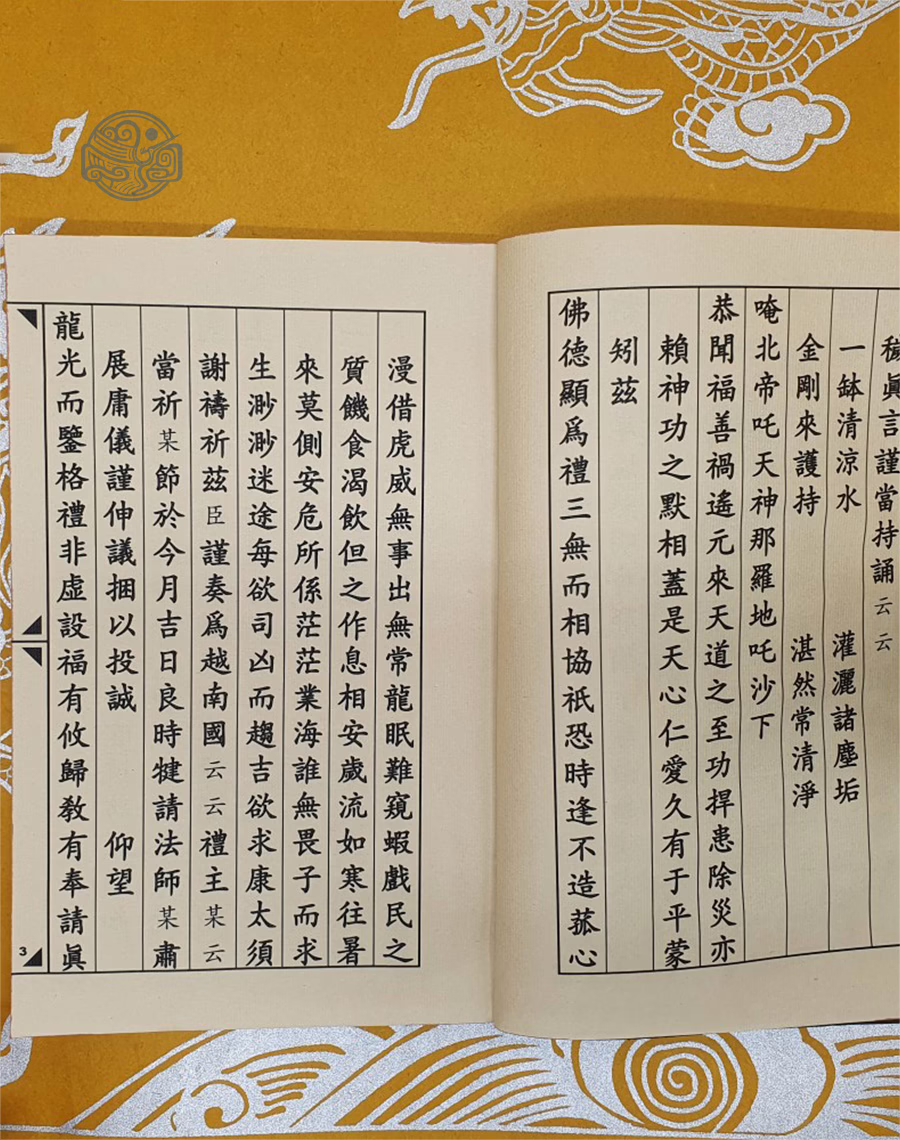 穢眞言謹當持誦云云
一缽清涼水 灌灑諸塵垢
金剛來護持 湛然常清淨
唵北帝吒天神那羅地吒沙下
恭聞福善禍遙元來天道之至功捍患除災亦
賴神功之默相蓋是天心仁愛久有于平蒙
矧茲
佛德顯爲禮三無而相協祇恐時逢不造菰心
漫借虎威無事出無常龍眠難窺蝦戲民之
質饑食渴飲但之作息相安歲流如寒往暑
來莫側安危所係茫茫業海誰無畏子而求
生渺渺迷途每欲司凶而趨吉欲求康太須
謝禱祈茲臣謹奏爲越南國云云禮主某云
當祈某節於今月吉日良時犍請法師某肅
展庸儀謹伸議捆以投誠 仰望
龍光而鑒格禮非虛設福有攸歸敎有奉請眞
3